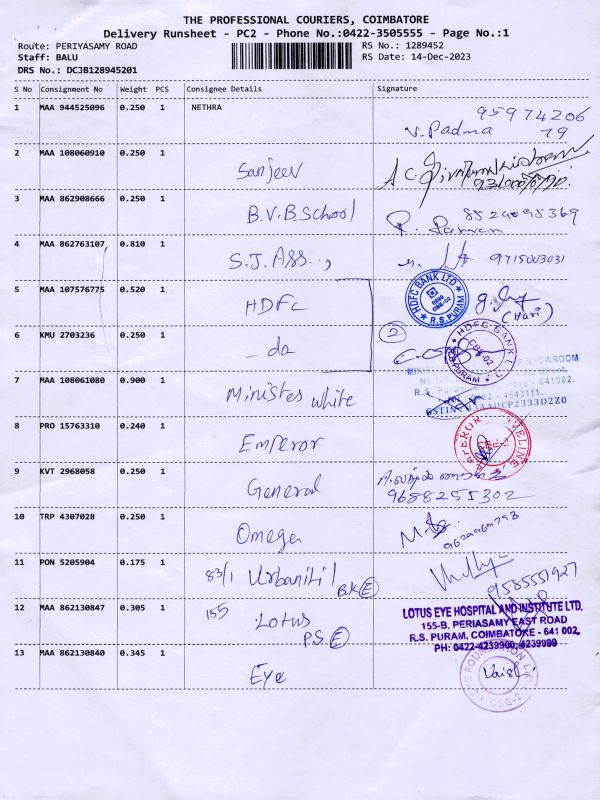 THE PROFESSIONAL COURIERS, COIMBATORE
Delivery Runsheet - PC2 - Phone No.:0422-3505555 - Page No.:1
Route: PERIYASAMY ROAD RS No.: 1289452
Staff: BALU RS Date: 14-Dec-2023
DRS No.: DCJB128945201
S No Consignment No Weight PCS Consignee Details Signature
1 MAA 944525096 0.250 1 NETHRA 95974206
V. Padma 79
2 MAA 108060910 0.250 1
Sanjeev A.C.
3 MAA 862908666 0.250 1
B.V.B School
4 MAA 862763107 0.810 1
S.J. Ass.., 9715003031
5 MAA 107576775 0.520 1 HDFC BANK LTD
HDFC CBE-02 (Hari)
R.S.PURAM
6 KMU 2703236 0.250 1 2 HDFC BANK L
- do CBE-02
R.S.PURAM
7 MAA 108061080 0.900 1 P.SHOWROOM
Ministes white 641002.
R.S. Pura 4643111.
GSTIN: 2333D2Z0
8 PRO 15763310 0.240 1
Emperor
9 KVT 2968058 0.250 1
General 9688255302
10 TRP 4307028 0.250 1
Omega
11 PON 5205904 0.175 1
83/1 B.K (E) 9585551927
12 MAA 862130847 0.305 1 LOTUS EYE HOSPITAL AND INSTITUTE LTD.
155 Lotus 155-B, PERIASAMY EAST ROAD
P.S. (E) R.S. PURAM, COIMBATORE - 641 002
PH: 0422-4239900, 4239999
13 MAA 862130840 0.345 1
Eye CBE-2